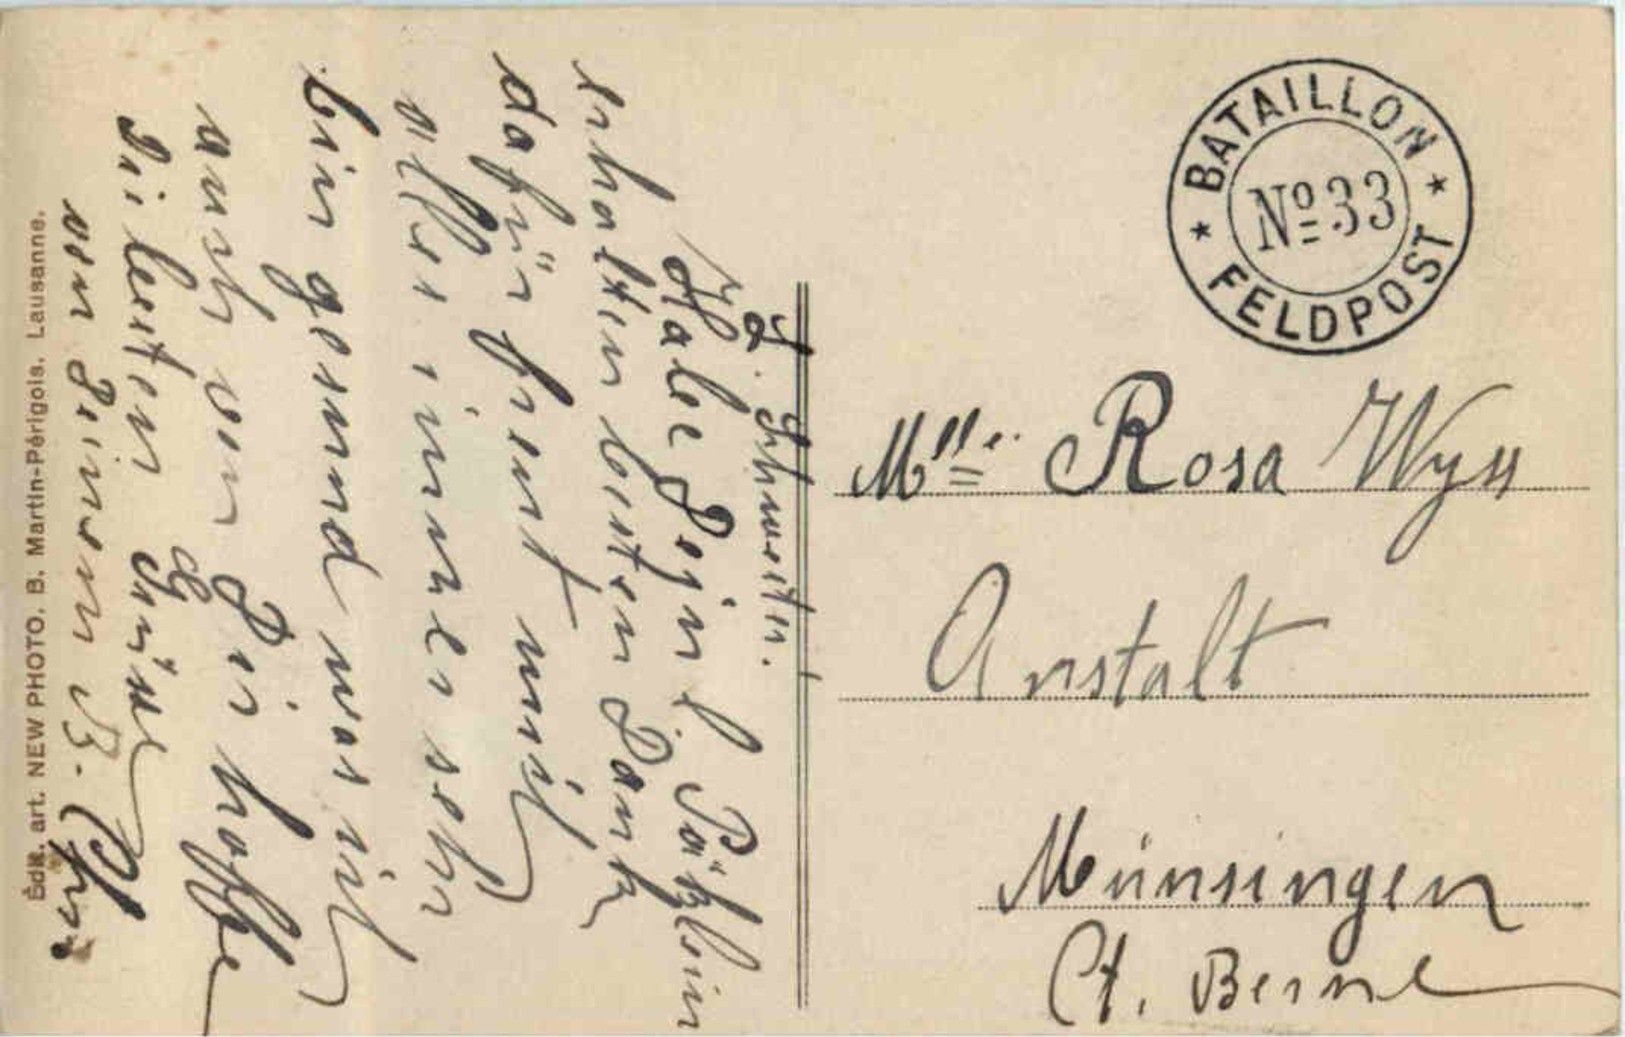 L. Schwester.
Habe Dein l. Päcklein
erhalten besten Dank
dafür freut mich
alles immer sehr
bin gesund was ich
auch von Dir hoffe
Die besten Grüsse
von Deinem B.
Édit. art. NEW PHOTO. B. Martin-Périgois. Lausanne.
BATAILLON
No 33
FELDPOST
Mlle Rosa Wyss
Anstalt
Münsingen
Ct. Berne